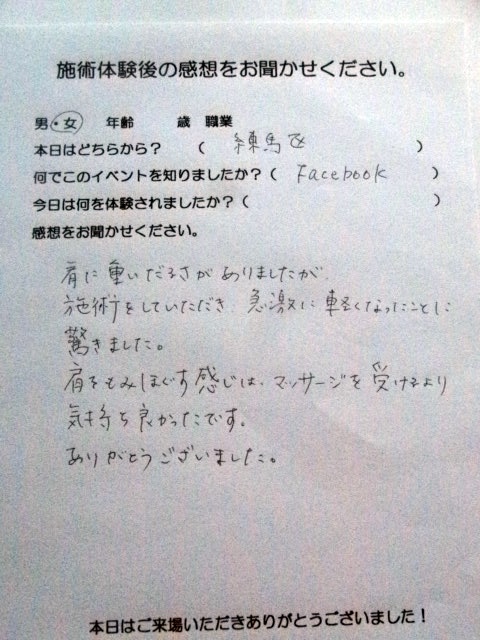 施術体験後の感想をお聞かせください。
男・女 年齢 歳 職業
本日はどちらから？ （ 練馬区 ）
何でこのイベントを知りましたか？（ Facebook ）
今日は何を体験されましたか？（ ）
感想をお聞かせください。
肩に重いだるさがありましたが、
施術をしていただき 急激に軽くなったことに
驚きました。
肩をもみほぐす感じは、マッサージを受けるより
気持ち良かったです。
ありがとうございました。
本日はご来場いただきありがとうございました！